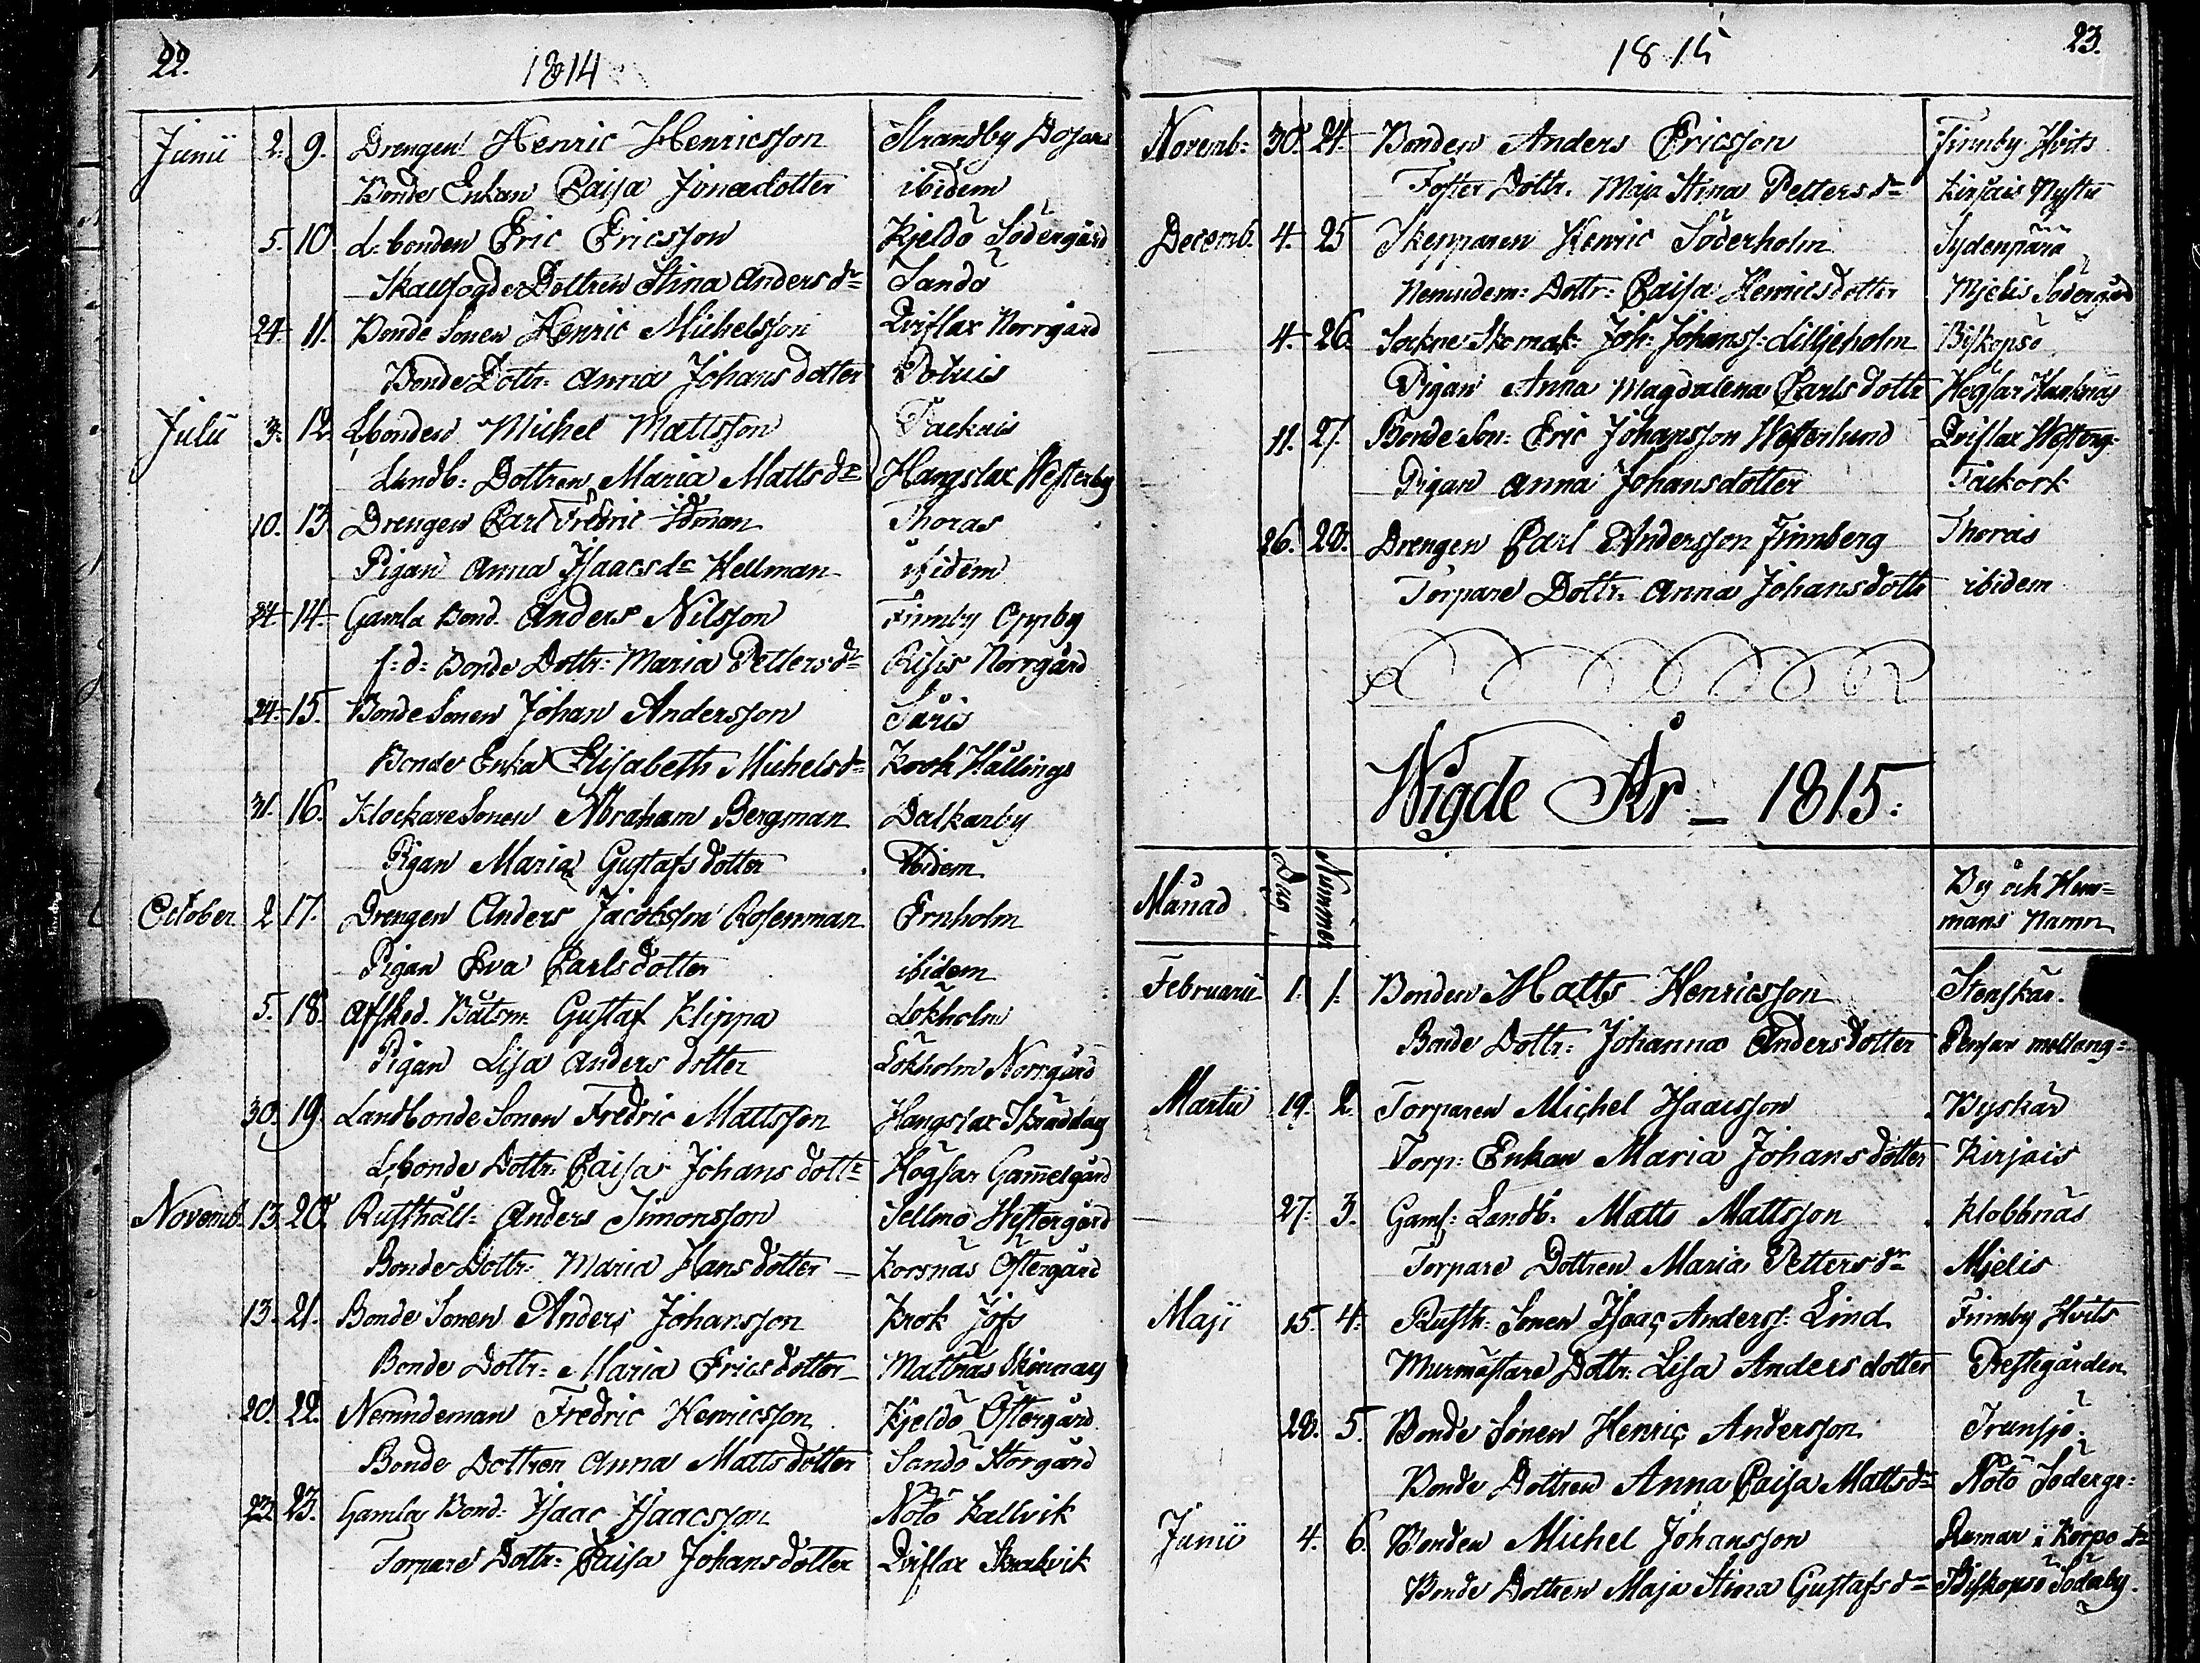 22.
1814
Junii 2. 9. Drengen Henric Henricsson Strandby
Bonde Enkan Caisa Jonasdotter ibidem
5. 10. L:bonden Eric Ericsson Kjeldö Södergård
Skallfogde Dottren Stina Anders dr Sandö
24. 11. Bonde Sonen Henric Michelsson Qviflax Norrgård
Bonde Dottr: Anna Johans dotter
Julii 3. 12. L:bonden Michel Mattsson Tackais
Landb: Dottren Maria Matts dr Hangslax Westerby
10. 13. Drengen Carl Fredric Idman Thoras
Pigan Anna Isaacs dr Hellman ibidem
24. 14. Gamla Bond. Anders Nilsson Finnby Oppby
f: d: Bonde Dottr: Maria Petters dr Risis Norrgård
24. 15. Bonde Sonen Johan Andersson Säris
Bonde Enka Elisabeth Michels dr Krok Hällings
31. 16. Klockare Sonen Abraham Bergman Dalkarby
Pigan Maria Gustafs dotter Ibidem
October 2 17. Drengen Anders Jacobsson Rosenman Ernholm
Pigan Eva Carls dotter ibidem
5. 18. Afsked. Båtsm. Gustaf Klippa Lökholm
Pigan Lisa Anders dotter Lökholm Norrgård
30. 19. Landbonde Sonen Fredric Mattsson Hangslax Skräddars
L:bonde Dottr: Caisa Johans dottr Högsar Gammelgård
Novemb. 13. 20. Rusthåll: Anders Simonsson Sellmo Westergård
Bonde Dottr: Maria Hans dotter Korsnäs Östergård
13. 21. Bonde Sonen Anders Johansson Krok Jofs
Bonde Dottr: Maria Erics dotter Mattnäs Skinnars
20. 22. Nemndeman Fredric Henricsson Kjeldö Östergård
Bonde Dottren Anna Matts dotter Sandö Storgård
23. 23. Gamla Bond: Isaac Isaacsson Nötö Kallvik
Torpare Dottr: Caisa Johans dotter Qviflax Skrakvik
23.
1815
Novemb: 30. 24. Bonden Anders Ericsson Finnby Hvits
Foster Dottr. Maja Stina Petters dr Kirjais Nystu
Decemb. 4. 25 Skepparen Henric Söderholm Sydenpärä
Nemndem: Dottr: Caisa Henricsdotter Mjelis Södergård
4. 26. Sockne Skomak: Joh: Johanss: Lilljeholm Biskopsö
Pigan Anna Magdalena Carls dottr Högsar
11. 27. Bonde Son: Eric Johansson Westerlund Qviflax Westerg:
Pigan Anna Johansdotter Tackork
26. 28. Drengen Carl Andersson Finnberg Thoras
Torpare Dottr: Anna Johans dottr ibidem
Wigde År – 1815:
Månad Dag Nummer By och Hem=
mans Namn
Februarii 1. 1. Bonden Matts Henricsson Stenskär.
Bonde Dottr: Johanna Anders dotter Pensar mellang=
Martii 19. 2. Torparen Michel Isacsson Byskär
Torp: Enkan Maria Johans dotter Kirjais
27. 3. Gaml: Landb: Matts Mattsson Klobbnäs
Torpare Dottren Maria Petters dr Mjelis
Maji 15. 4. Rusth. Sonen Isaac Anderss: Lind Finnby Hvits
Murmästare Dottr. Lisa Anders dotter Prestegården
28. 5. Bonde Sonen Henric Andersson Trunsjö.
Bonde Dottren Anna Caisa Matts dr Nötö Södergr:
Junii 4. 6. Bonden Michel Johansson Rumar i Korpo Sn
Bonde Dottren Maja Stina Gustafs dr Biskopsö Söderby.